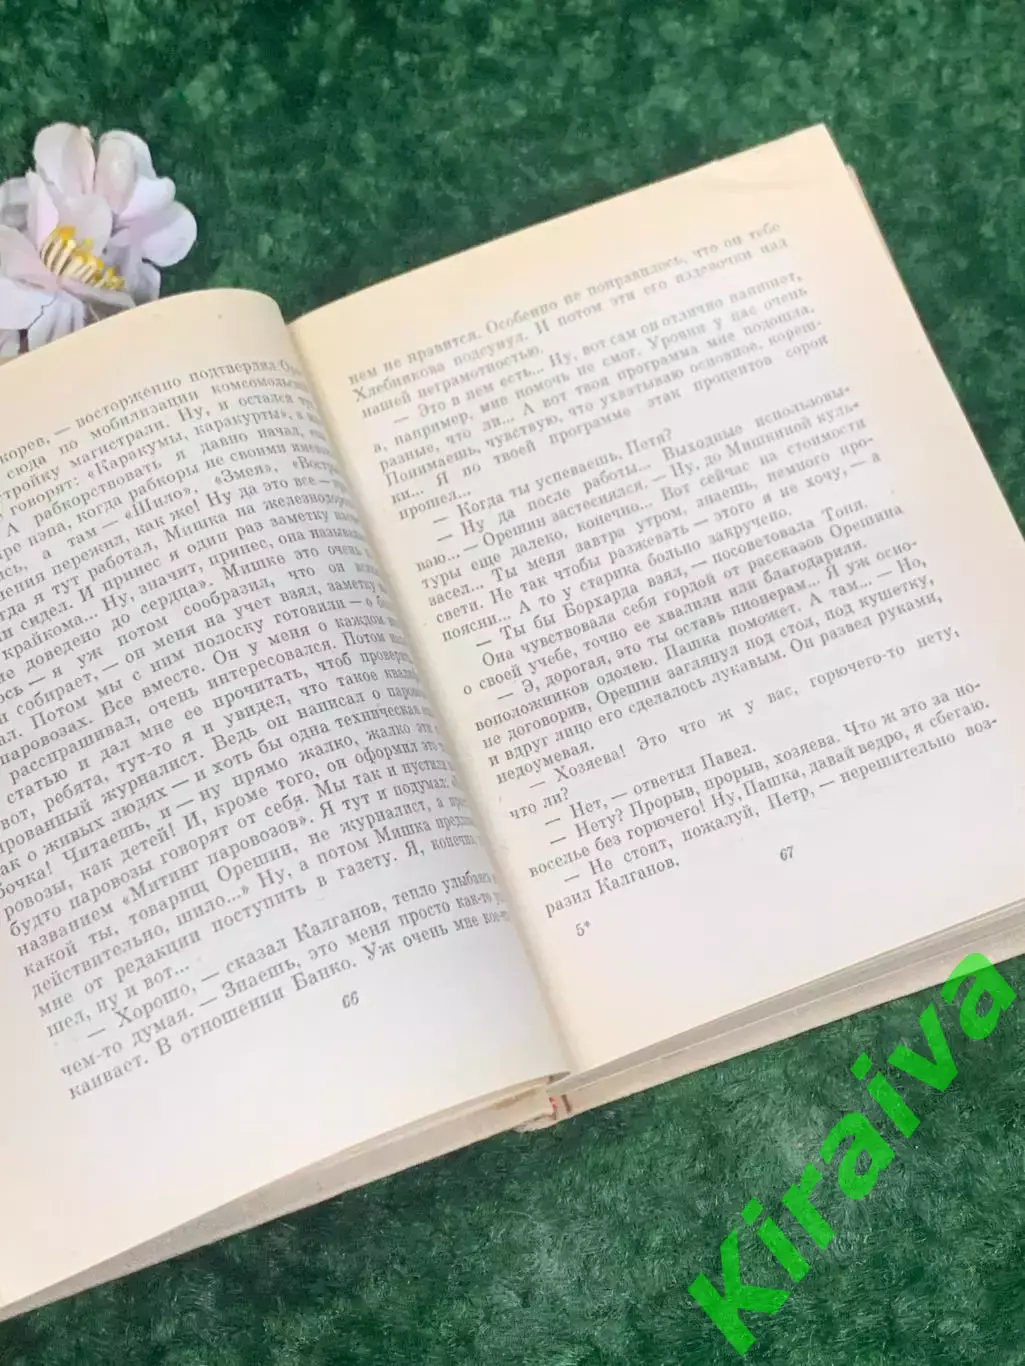 корев, — восторженно подтвердил
сюда по мобилизации комсомольс
тройку магистрали. Ну, и остался
говорят: «Каракумы, каракурты»,
А рабкорствовать я давно начал,
нэпа, когда рабкоры не своими
а там — «Шило», «Змея»,
пережил, как же! Ну да это все —
я тут работал, Мишка на железнодоро
сидел. И принес я один раз заметку
крайкома... Ну, значит, принес, она
доведено до сердца». Мишке это очень
лось — я уж потом сообразил, что он
собирает, — он меня на учет взял, заметку
ал. Потом мы с ним полоску готовили — о
паровозах. Все вместе. Он у меня о каждом
расспрашивал, очень интересовался. Потом
статью и дал мне ее прочитать, чтоб провери
вот, ребята, тут-то я и увидел, что такое
рованный журналист. Ведь он написал о паров
ак о живых людях — и хоть бы одна техническая
бочка! Читаешь, и — ну прямо жалко, жалко эти
ровозы, как детей! И, кроме того, он оформил это
будто паровозы говорят от себя. Мы так и пустили
названием «Митинг паровозов». Я тут и подумал:
какой ты, товарищ Орешин, не журналист, а
действительно, шило...» Ну, а потом Мишка предло
мне от редакции поступить в газету. Я, конечно,
шел, ну и вот...
— Хорошо, — сказал Калганов, тепло улыбаясь
чем-то думая. — Знаешь, это меня просто как-то
каивает. В отношении Банко. Уж очень мне кое-
66
нем не нравится. Особенно не понравилось, что он тебе
Хлебникова подсунул. И потом эти его издевочки над
нашей неграмотностью.
— Это в нем есть... Ну, вот сам он отлично напишет,
а, например, мне помочь не смог. Уровни у нас очень
разные, что ли... А вот твоя программа мне подошла.
Понимаешь, чувствую, что ухватываю основное, кореш-
ки... Я по твоей программе этак процентов сорок
прошел...
— Когда ты успеваешь, Петя?
— Ну да после работы... Выходные использовы-
ваю... — Орешин застеснялся. — Ну, до Мишкиной куль-
туры еще далеко, конечно... Вот сейчас на стоимости
засел... Ты меня завтра утром, знаешь, немного про-
свети. Не так чтобы разжевать — этого я не хочу, — а
поясни... А то у старика больно закручено.
— Ты бы Борхарда взял, — посоветовала Тоня.
Она чувствовала себя гордой от рассказов Орешина
о своей учебе, точно ее хвалили или благодарили.
— Э, дорогая, это ты оставь пионерам... Я уж осно-
воположников одолею. Пашка поможет. А там... — Но,
не договорив, Орешин заглянул под стол, под кушетку,
и вдруг лицо его сделалось лукавым. Он развел руками,
недоумевая.
— Хозяева! Это что ж у вас, горючего-то нету,
что ли?
— Нет, — ответил Павел.
— Нету? Прорыв, прорыв, хозяева. Что ж это за но-
воселье без горючего! Ну, Пашка, давай ведро, я сбегаю.
— Не стоит, пожалуй, Петр, — нерешительно воз-
разил Калганов.
5*
67
Kiraiva